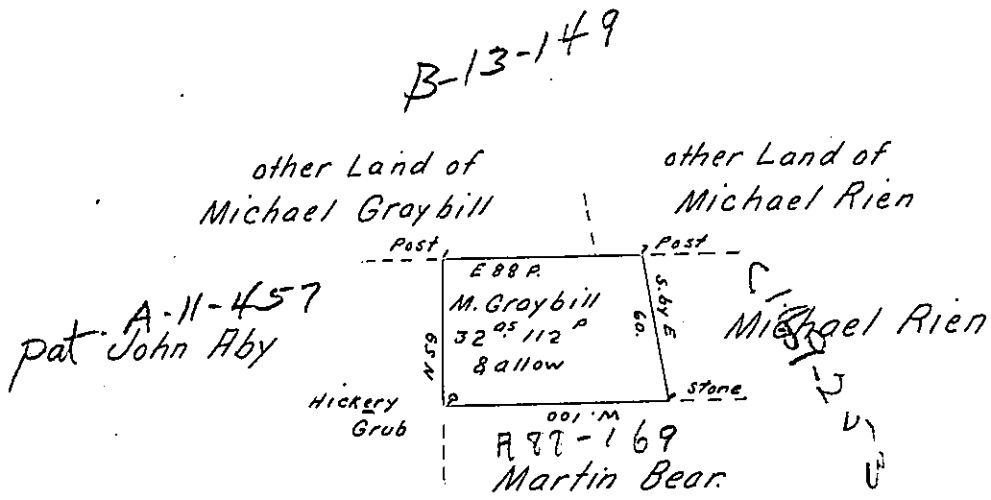 B-13-149
other Land of
Michael Graybill
other Land of
Michael Rien
Post
Post
E 88 P.
M. Graybill
32 as. 112 P
& allow
N 59
S. by E
60.
A-11-457
pat John Aby
Michael Rien
Hickery
Grub
Stone
W. 100
A 88-169
Martin Bear.